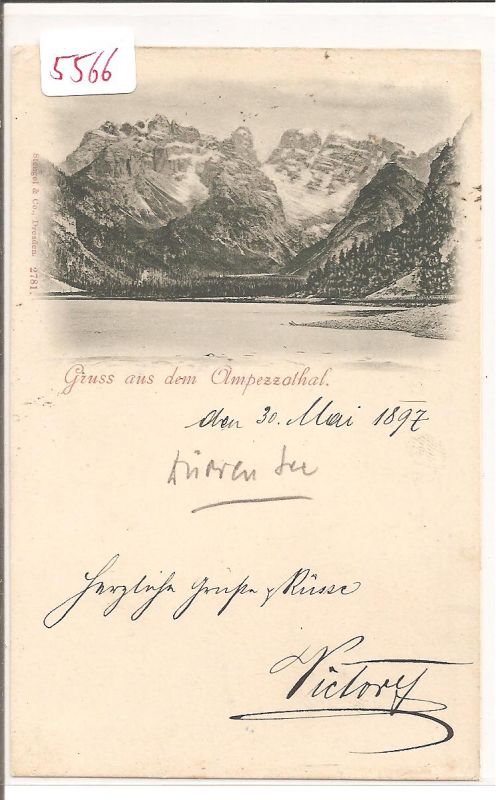 5566
Stengel & Co., Dresden. 2781.
Gruss aus dem Ampezzothal.
den 30. Mai 1897
Dürren See
Herzliche Grüße & Küsse
Victor